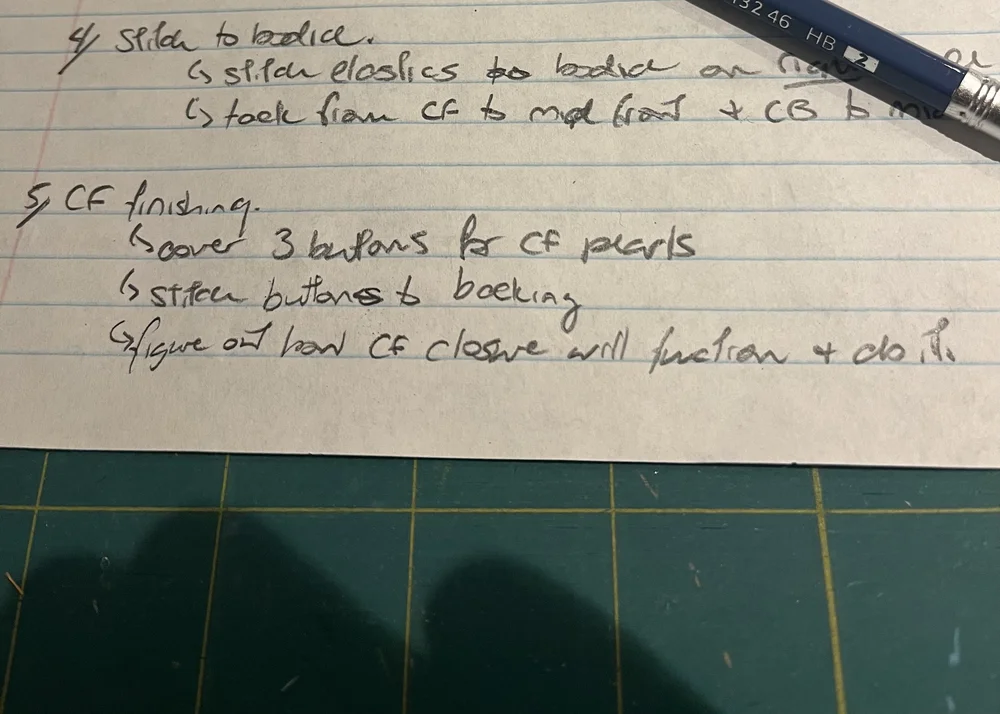 132 46 HB 2
4) Stitch to bodice.
↳ stitch elastics to bodice on
↳ tack from CF to mid front + CB to mid.
5) CF finishing.
↳ cover 3 buttons for CF pearls
↳ stitch buttons to backing
↳ figure out how CF closure will function + do it.